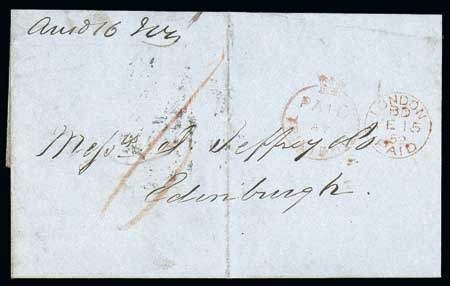 Ansd 16
PAID
LONDON
15
PAID
Messrs J. Jeffrey & Co.
Edinburgh.